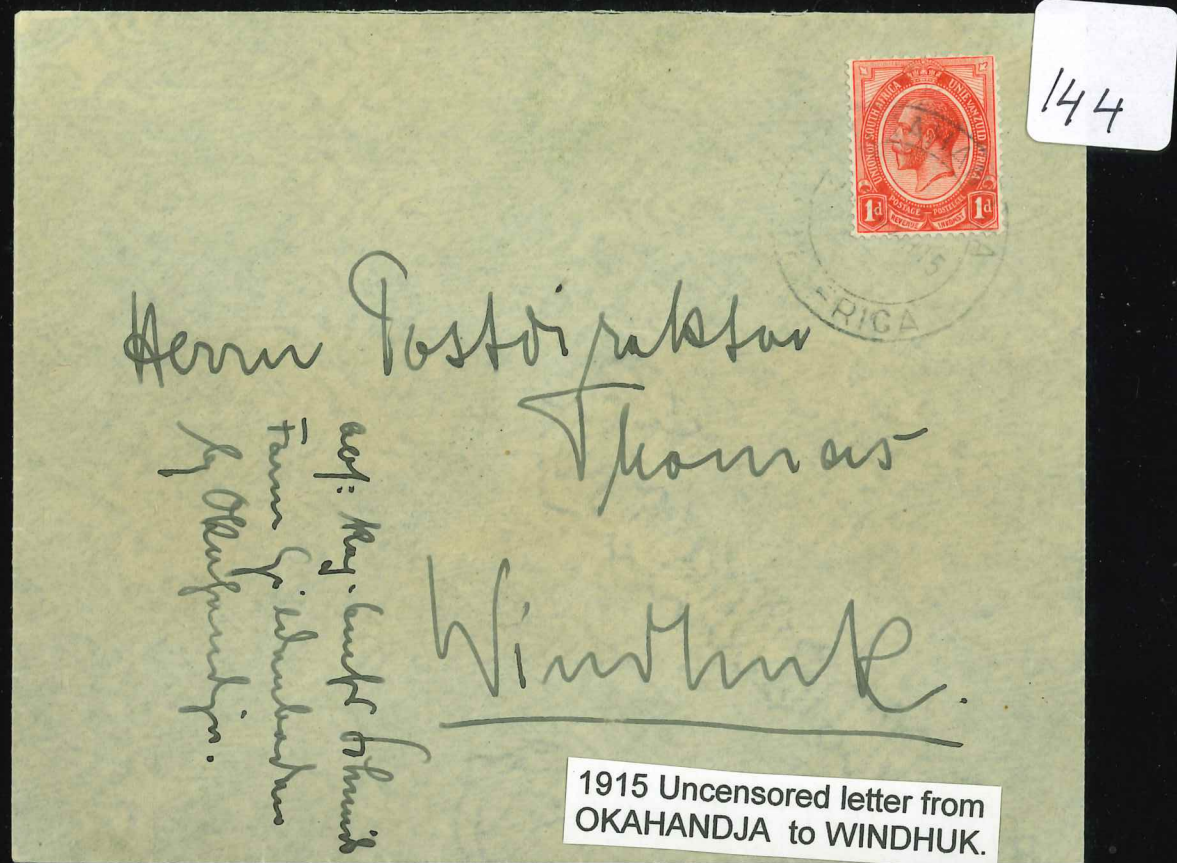 144
UNION OF SOUTH AFRICA UNIE VAN ZUID AFRIKA
POSTAGE POSTZEGEL
REVENUE INKOMST
1d 1d
15
RICA
Herrn Postdirektor
Thomas
Windhuk.
abs:
Farm
Okahandja.
1915 Uncensored letter from
OKAHANDJA to WINDHUK.